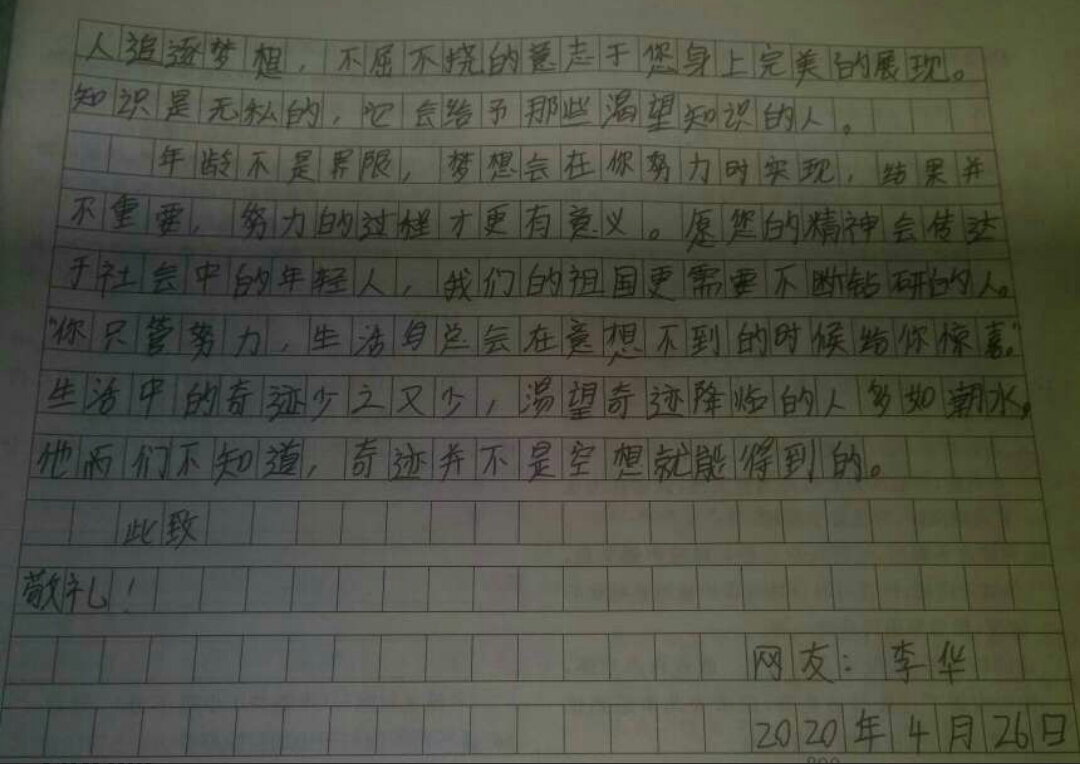 人追逐梦想，不屈不挠的意志于您身上完美的展现。
知识是无私的，它会给予那些渴望知识的人。
年龄不是界限，梦想会在你努力时实现，结果并
不重要，努力的过程才更有意义。愿您的精神会传达
于社会中的年轻人，我们的祖国更需要不断钻研的人。
"你只管努力，生活自总会在意想不到的时候给你惊喜。"
生活中的奇迹少之又少，渴望奇迹降临的人多如潮水。
他而们不知道，奇迹并不是空想就能得到的。
此致
敬礼！
网友：李华
2020年4月26日